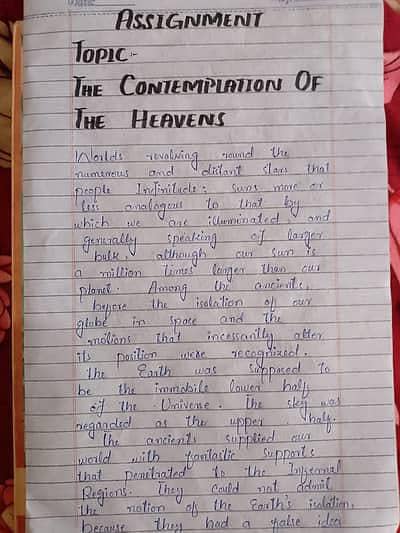 ASSIGNMENT
TOPIC:-
THE CONTEMPLATION OF
THE HEAVENS
Worlds revolving round the
numerous and distant stars that
people Infinitude: suns more or
less analogous to that by
which we are illuminated and
generally speaking of larger
bulk although our sun is
a million times larger than our
planet. Among the ancients,
before the isolation of our
globe in space and the
motions that incessantly alter
its position were recognized.
the Earth was supposed to
be the immobile lower half
of the Universe. The sky was
regarded as the upper half.
The ancients supplied our
world with fantastic supports
that penetrated to the Infernal
Regions. They could not admit
the notion of the Earth's isolation,
because they had a false idea